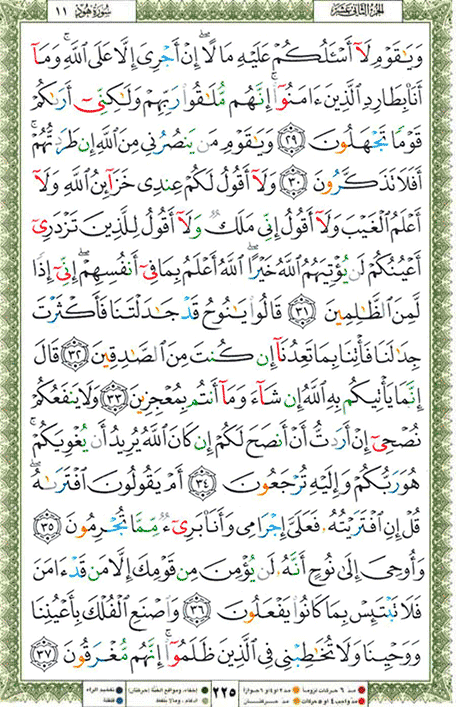 الجزء الثاني عشر
سورة هود ١١
وَيَٰقَوْمِ لَآ أَسْـَٔلُكُمْ عَلَيْهِ مَالًا ۖ إِنْ أَجْرِىَ إِلَّا عَلَى ٱللَّهِ ۚ وَمَآ
أَنَا۠ بِطَارِدِ ٱلَّذِينَ ءَامَنُوٓا۟ ۚ إِنَّهُم مُّلَٰقُوا۟ رَبِّهِمْ وَلَٰكِنِّىٓ أَرَىٰكُمْ
قَوْمًا تَجْهَلُونَ ٢٩ وَيَٰقَوْمِ مَن يَنصُرُنِى مِنَ ٱللَّهِ إِن طَرَدتُّهُمْ ۚ
أَفَلَا تَذَكَّرُونَ ٣٠ وَلَآ أَقُولُ لَكُمْ عِندِى خَزَآئِنُ ٱللَّهِ وَلَآ
أَعْلَمُ ٱلْغَيْبَ وَلَآ أَقُولُ إِنِّى مَلَكٌ وَلَآ أَقُولُ لِلَّذِينَ تَزْدَرِىٓ
أَعْيُنُكُمْ لَن يُؤْتِيَهُمُ ٱللَّهُ خَيْرًا ۖ ٱللَّهُ أَعْلَمُ بِمَا فِىٓ أَنفُسِهِمْ ۖ إِنِّىٓ إِذًا
لَّمِنَ ٱلظَّٰلِمِينَ ٣١ قَالُوا۟ يَٰنُوحُ قَدْ جَٰدَلْتَنَا فَأَكْثَرْتَ
جِدَٰلَنَا فَأْتِنَا بِمَا تَعِدُنَآ إِن كُنتَ مِنَ ٱلصَّٰدِقِينَ ٣٢ قَالَ
إِنَّمَا يَأْتِيكُم بِهِ ٱللَّهُ إِن شَآءَ وَمَآ أَنتُم بِمُعْجِزِينَ ٣٣ وَلَا يَنفَعُكُمْ
نُصْحِىٓ إِنْ أَرَدتُّ أَنْ أَنصَحَ لَكُمْ إِن كَانَ ٱللَّهُ يُرِيدُ أَن يُغْوِيَكُمْ ۚ
هُوَ رَبُّكُمْ وَإِلَيْهِ تُرْجَعُونَ ٣٤ أَمْ يَقُولُونَ ٱفْتَرَىٰهُ ۖ
قُلْ إِنِ ٱفْتَرَيْتُهُۥ فَعَلَىَّ إِجْرَامِى وَأَنَا۠ بَرِىٓءٌ مِّمَّا تُجْرِمُونَ ٣٥
وَأُوحِىَ إِلَىٰ نُوحٍ أَنَّهُۥ لَن يُؤْمِنَ مِن قَوْمِكَ إِلَّا مَن قَدْ ءَامَنَ
فَلَا تَبْتَئِسْ بِمَا كَانُوا۟ يَفْعَلُونَ ٣٦ وَٱصْنَعِ ٱلْفُلْكَ بِأَعْيُنِنَا
وَوَحْيِنَا وَلَا تُخَٰطِبْنِى فِى ٱلَّذِينَ ظَلَمُوٓا۟ ۚ إِنَّهُم مُّغْرَقُونَ ٣٧
مد ٦ حركات لزوماً مد ٢ او ٤ او ٦ جوازاً
مد واجب ٤ او ٥ حركات مد حركتان
٢٢٥
إخفاء، ومواقع الغنة (حركتان) تفخيم الراء
ادغام، ومالا يلفظ قلقلة